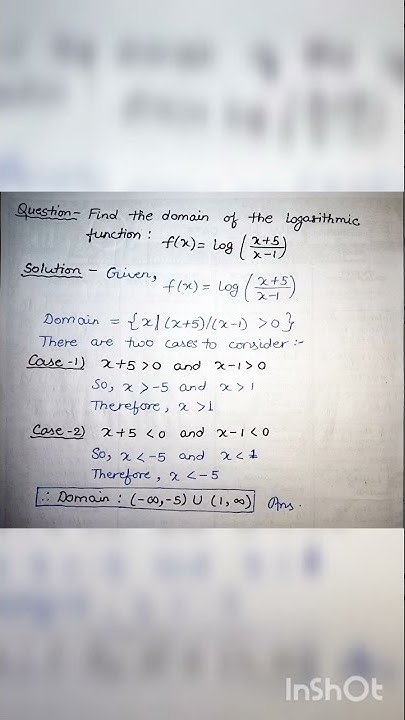 Question- Find the domain of the logarithmic
function: f(x) = log ((x+5)/(x-1))
Solution - Given, f(x) = log ((x+5)/(x-1))
Domain = {x | (x+5)/(x-1) >0}
There are two cases to consider :-
Case-1) x+5>0 and x-1>0
So, x>-5 and x>1
Therefore, x>1
Case-2) x+5<0 and x-1<0
So, x<-5 and x<1
Therefore, x<-5
∴ Domain : (-∞,-5) ∪ (1,∞) Ans.
InShOt